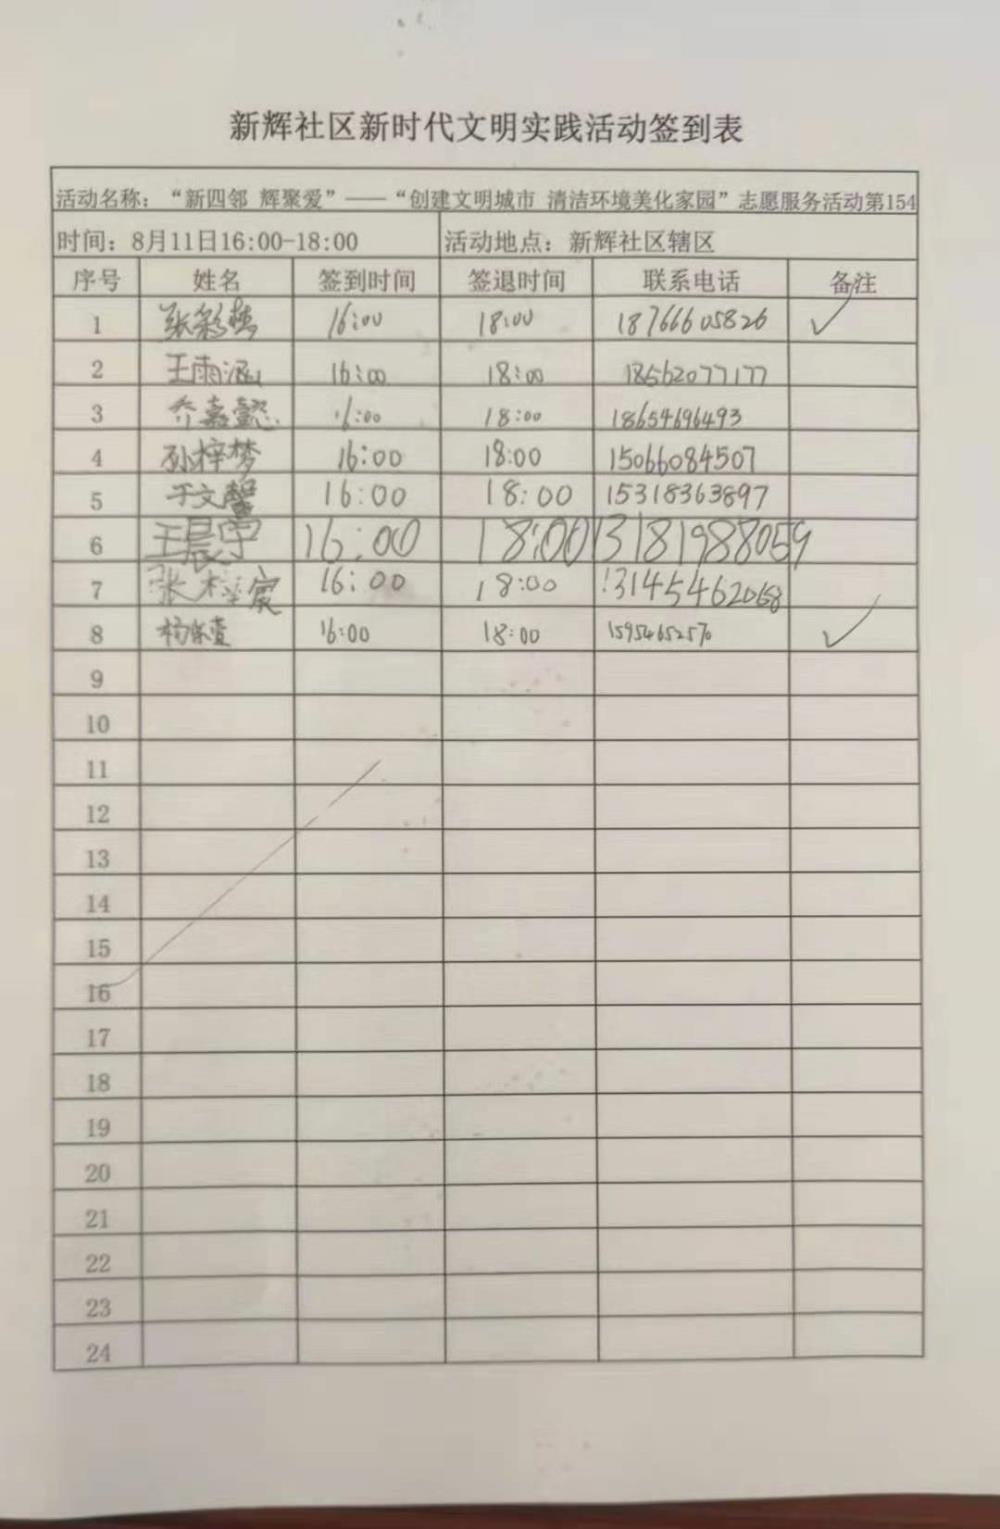 新辉社区新时代文明实践活动签到表
活动名称：“新四邻 辉聚爱”——“创建文明城市 清洁环境美化家园”志愿服务活动第154
时间：8月11日16:00-18:00 活动地点：新辉社区辖区
序号 姓名 签到时间 签退时间 联系电话 备注
1 16:00 18:00 18766605826 ✓
2 王雨涵 16:00 18:00 18562077177
3 乔嘉懿 16:00 18:00 18654696493
4 孙梓梦 16:00 18:00 15066084507
5 于文馨 16:00 18:00 15318363897
6 王晨宇 16:00 18:00 13181988059
7 16:00 18:00 13145462068
8 16:00 18:00 15954652570 ✓
9
10
11
12
13
14
15
16
17
18
19
20
21
22
23
24